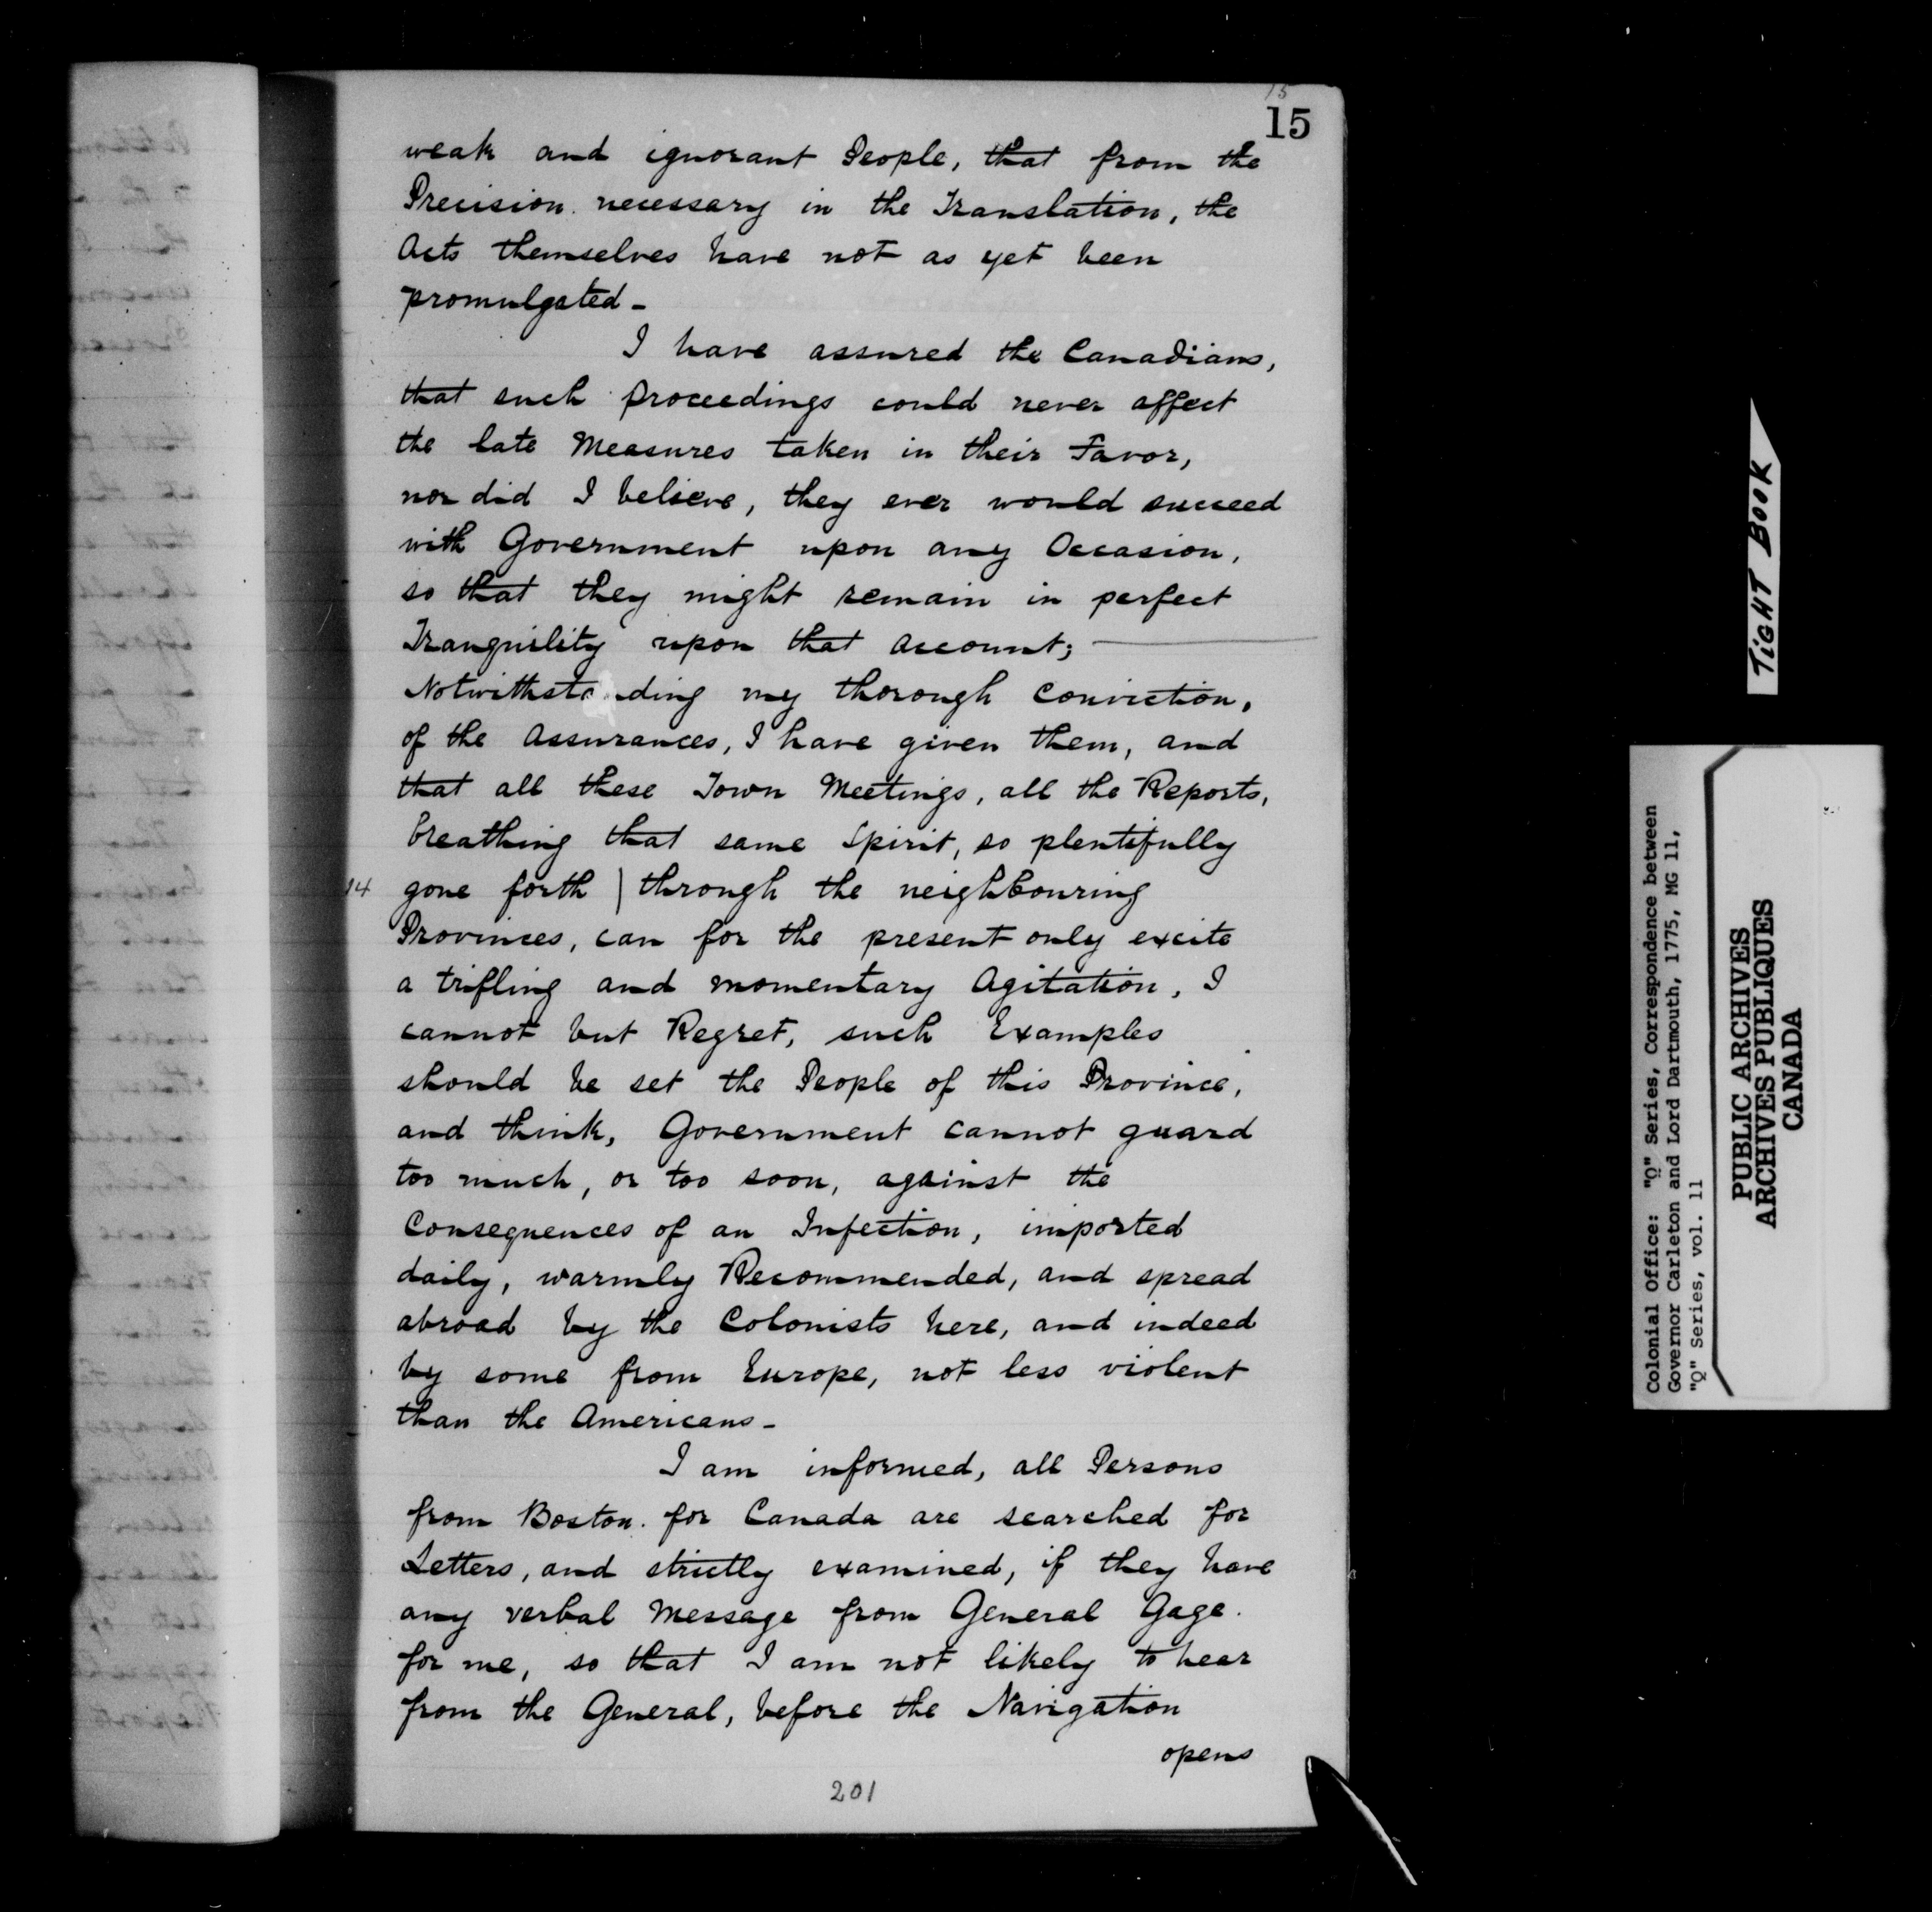 15
15
weak and ignorant People, that from the
Precision necessary in the Translation, the
Acts themselves have not as yet been
promulgated -
I have assured the Canadians,
that such proceedings could never affect
the late Measures taken in their Favor,
nor did I believe, they ever would succeed
with Government upon any Occasion,
so that they might remain in perfect
Tranquility upon that Account;
Notwithstanding my thorough Conviction,
of the Assurances, I have given them, and
that all these Town Meetings, all the Reports,
breathing that same Spirit, so plentifully
14 gone forth | through the neighbouring
Provinces, can for the present only excite
a trifling and momentary Agitation, I
cannot but Regret, such Examples
should be set the People of this Province,
and think, Government cannot guard
too much, or too soon, against the
Consequences of an Infection, imported
daily, warmly Recommended, and spread
abroad by the Colonists here, and indeed
by some from Europe, not less violent
than the Americans -
I am informed, all Persons
from Boston. for Canada are searched for
Letters, and strictly examined, if they have
any verbal Message from General Gage.
for me, so that I am not likely to hear
from the General, before the Navigation
opens
201
TIGHT BOOK
Colonial Office: "Q" Series, Correspondence between
Governor Carleton and Lord Dartmouth, 1775, MG 11,
"Q" Series, vol. 11
PUBLIC ARCHIVES
ARCHIVES PUBLIQUES
CANADA